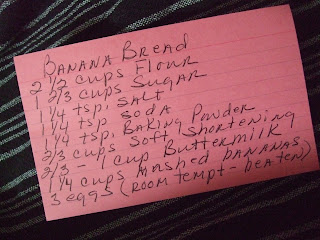 BANANA BREAD
2 1/2 CUPS FLOUR
1 2/3 CUPS SUGAR
1 1/4 tsp. SALT
1 1/4 tsp SODA
1 1/4 tsp. BAKING POWDER
2/3 CUPS SOFT SHORTENING
2/3 - 1 CUP BUTTERMILK
1 1/4 CUPS MASHED BANANAS
3 EGGS (ROOM TEMPT - BEATEN)